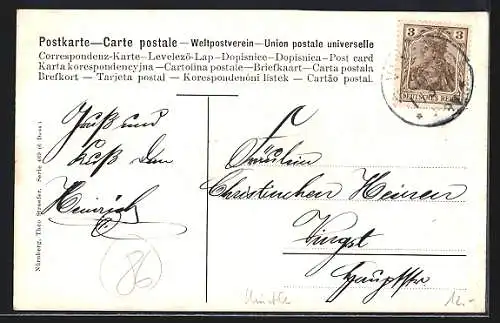 Postkarte—Carte postale—Weltpostverein—Union postale universelle
Correspondenz-Karte—Levelező-Lap—Dopisnice—Dopisnica—Post card
Karta korespondencyjna—Cartolina postale—Briefkaart—Carta postala
Brefkort — Tarjeta postal — Korespondenóni listek — Cartão postal.
3
3
DEUTSCHES REICH
Gruß und
Kuß dein
Heinrich
Fräulein
Christinchen Heinen
Vingst
Hauptstr
Nürnberg, Theo Stroefer, Serie 469 (6 Dess.)
86
12.-